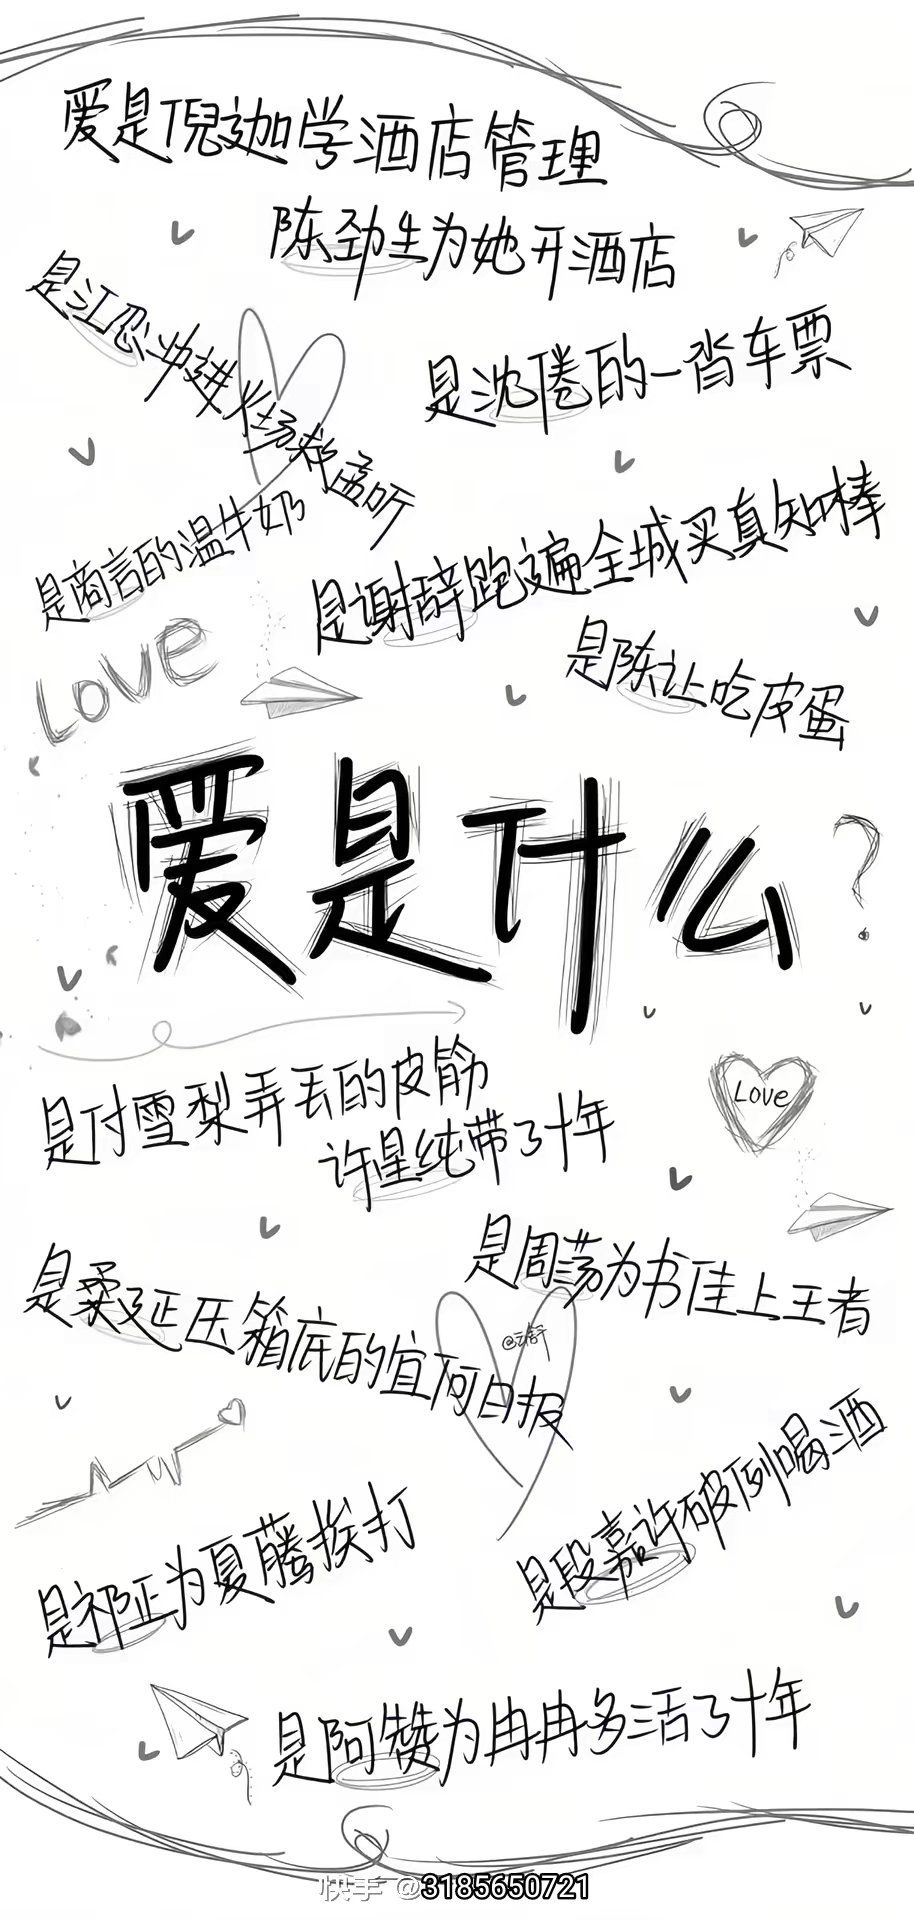 爱是倪迦学酒店管理
陈劲生为她开酒店
是江忍冲进火场救孟听
是沈倦的一沓车票
是商言的温牛奶
是谢辞跑遍全城买真知棒
Love
是陈让吃皮蛋
爱是什么?
是付雪梨弄丢的皮筋
许星纯带了十年
Love
是周荡为书佳上王者
是柔延压箱底的宜阿日报
是祁正为夏藤挨打
是段嘉许破例喝酒
是阿赞为冉冉多活了十年
快手 @3185650721